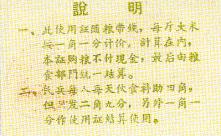 說明
一、此使用証随粮帶綫，每斤大米
按一角一分計价，計算在內，
本証购粮不付現金，最后由粮
食部門統一結算。
二、民兵每人每天伙食补助四角，
但 发二角九分，另外一角一
分作使用証結算使用。